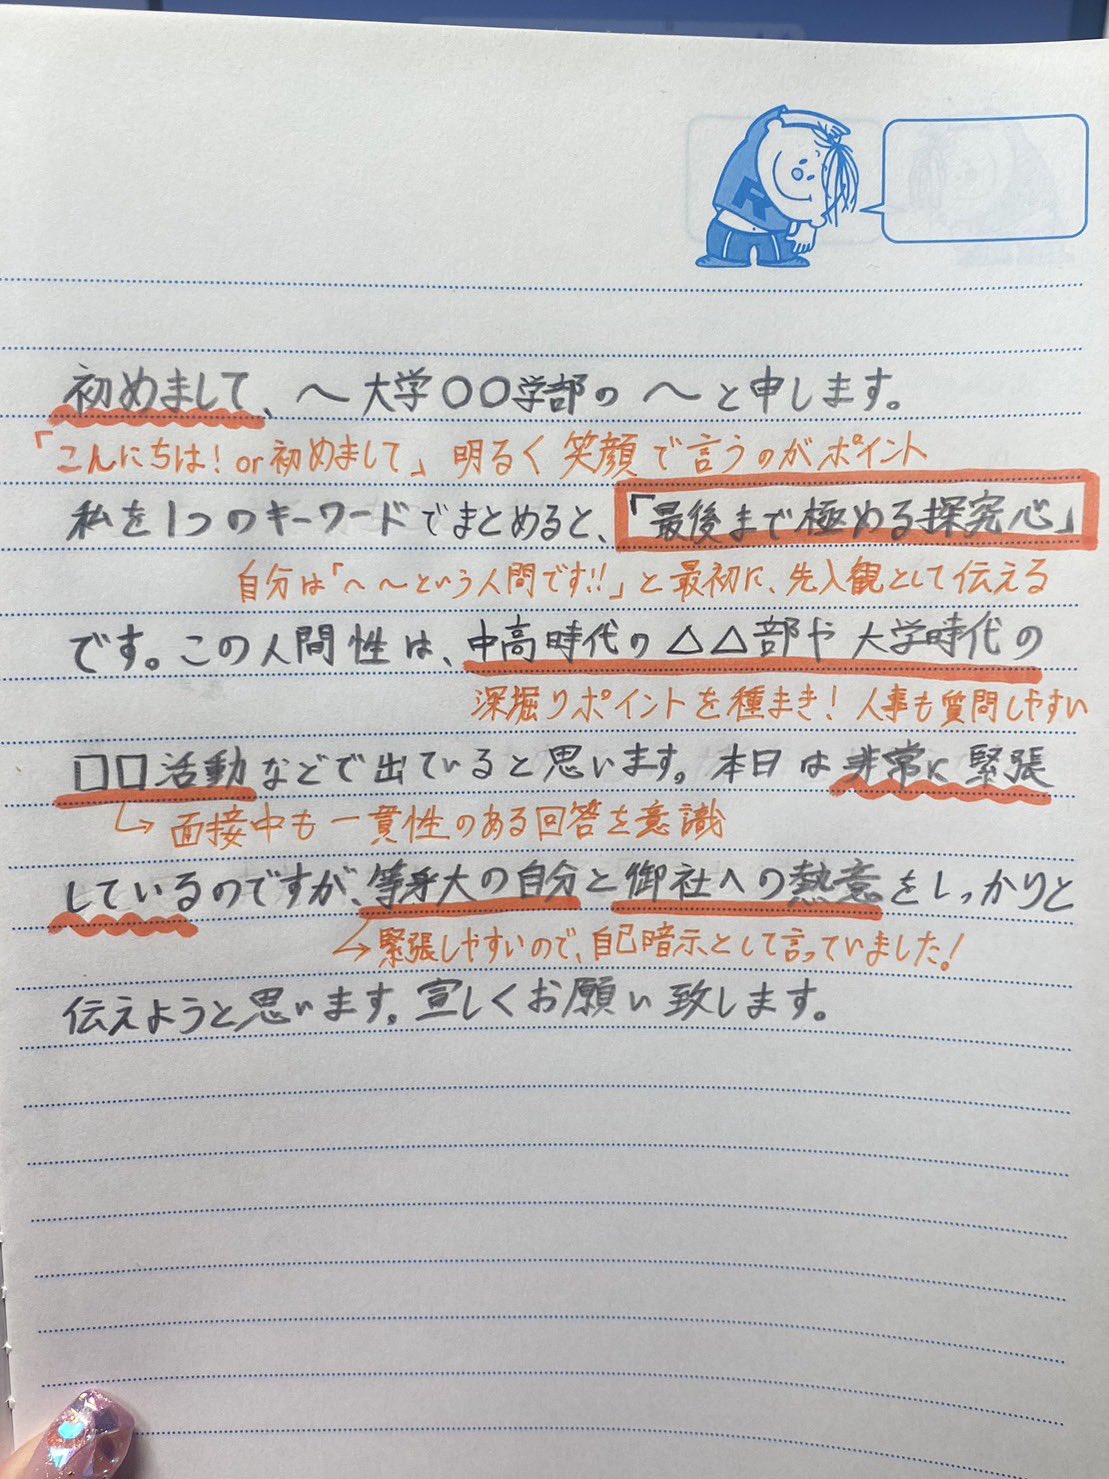 R
初めまして、～大学〇〇学部の～と申します。
「こんにちは！or初めまして」明るく笑顔で言うのがポイント
私を1つのキーワードでまとめると、「最後まで極める探究心」
自分は「～～という人間です!!」と最初に、先入観として伝える
です。この人間性は、中高時代の△△部や大学時代の
深掘りポイントを種まき！人事も質問しやすい
□□活動などで出ていると思います。本日は非常に緊張
↳面接中も一貫性のある回答を意識
しているのですが、等身大の自分と御社への熱意をしっかりと
↳緊張しやすいので、自己暗示として言っていました！
伝えようと思います。宜しくお願い致します。